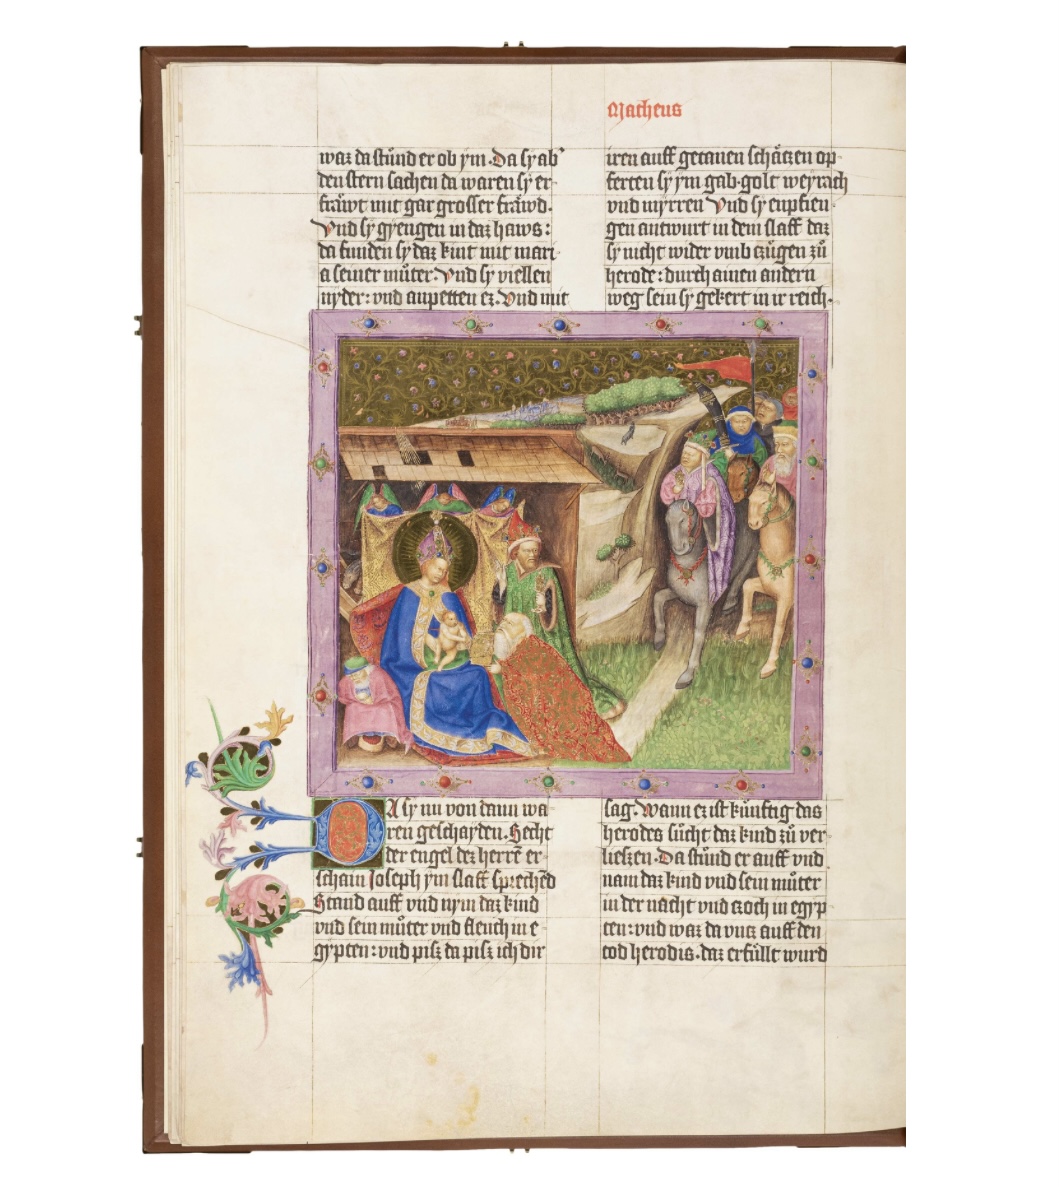 Matheus
waz da stůnd er ob ym. Da sy ab᾽
den stern sachen da waren sy er-
fräwt mit gar grosser fräwd.
Vnd sy gyengen in daz haws:
da funden sy daz kint mit mari-
a seiner můter. Vnd sy viellen
nyder: vnd anpetten ez. Vnd mit
iren auff getanen schätzen op-
ferten sy ym gab. golt weyrach
vnd myrren Vnd sy enpfien-
gen antwurt in dem slaff daz
sy nicht wider vmb czügen zů
herode: durch ainen andern
weg sein sy gekert in ir reich.
DA sy nu von dann wa-
ren geschayden. Secht
der engel dez herrē er-
schain Joseph ym slaff sprechēd
Stand auff vnd nym daz kind
vnd sein můter vnd fleuch in e-
gypten: vnd pisz da pisz ich dir
sag. Wann ez ist künftig das
herodes sücht daz kind zů ver-
lieszen. Da stůnd er auff vnd
nam daz kind vnd sein můter
in der nacht vnd czoch in egyp-
ten: vnd waz da vncz auff den
tod herodis. daz erfüllt wurd